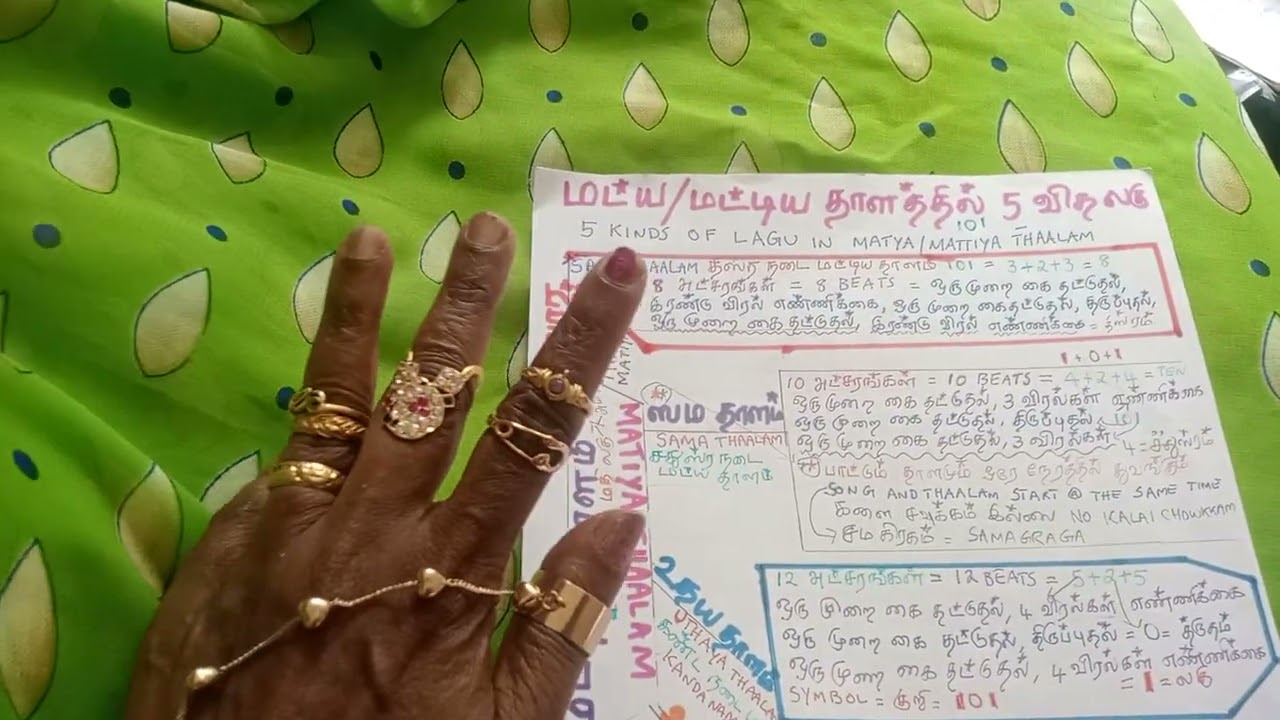 மட்ய/மட்டிய தாளத்தில் 5 வித லகு
101
5 KINDS OF LAGU IN MATYA/MATTIYA THAALAM
THAALAM திஸ்ர நடை மட்டிய தாளம் 101 = 3+2+3 = 8
8 அட்சரங்கள் = 8 BEATS = ஒரு முறை கை தட்டுதல்,
இரண்டு விரல் எண்ணிக்கை, ஒரு முறை கைதட்டுதல், திருப்புதல்,
ஒரு முறை கை தட்டுதல், இரண்டு விரல் எண்ணிக்கை = திஸ்ரம்
1+0+1
10 அட்சரங்கள் = 10 BEATS = 4+2+4 = TEN
ஒரு முறை கை தட்டுதல், 3 விரல்கள் எண்ணிக்கை
ஒரு முறை கை தட்டுதல், திருப்புதல்
ஒரு முறை கை தட்டுதல், 3 விரல்கள் 4 = சதுஸ்ரம்
ஸம தாளம்
SAMA THAALAM
சதுஸ்ர நடை
மட்ய தாளம்
பாட்டும் தாளமும் ஒரே நேரத்தில் துவங்கும்
SONG AND THAALAM START @ THE SAME TIME
களை சவுக்கம் இல்லை NO KALAI CHOWKKAM
சம கிரகம் = SAMAGRAGA
MATIYA THAALAM
உதய தாளம்
UTHAYA THAALAM
கண்ட நடை
KANDA NAM
12 அட்சரங்கள் = 12 BEATS = 5+2+5
ஒரு முறை கை தட்டுதல், 4 விரல்கள் எண்ணிக்கை
ஒரு முறை கை தட்டுதல், திருப்புதல் = 0 = திருதம்
ஒரு முறை கை தட்டுதல், 4 விரல்கள் எண்ணிக்கை
SYMBOL = குறி = 101 = 1 = லகு